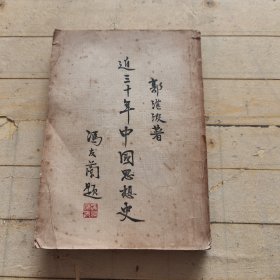 郭湛波著
近三十年中國思想史
馮友蘭題